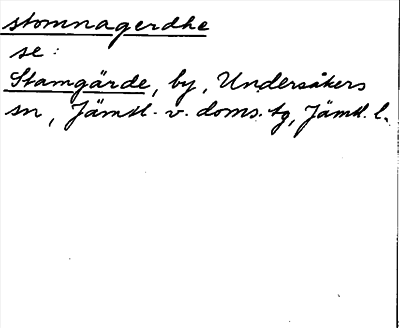 stomnagerdhe
se:
Stamgärde, by, Undersåkers
sn, Jämtl. v. doms. tg, Jämtl. l.